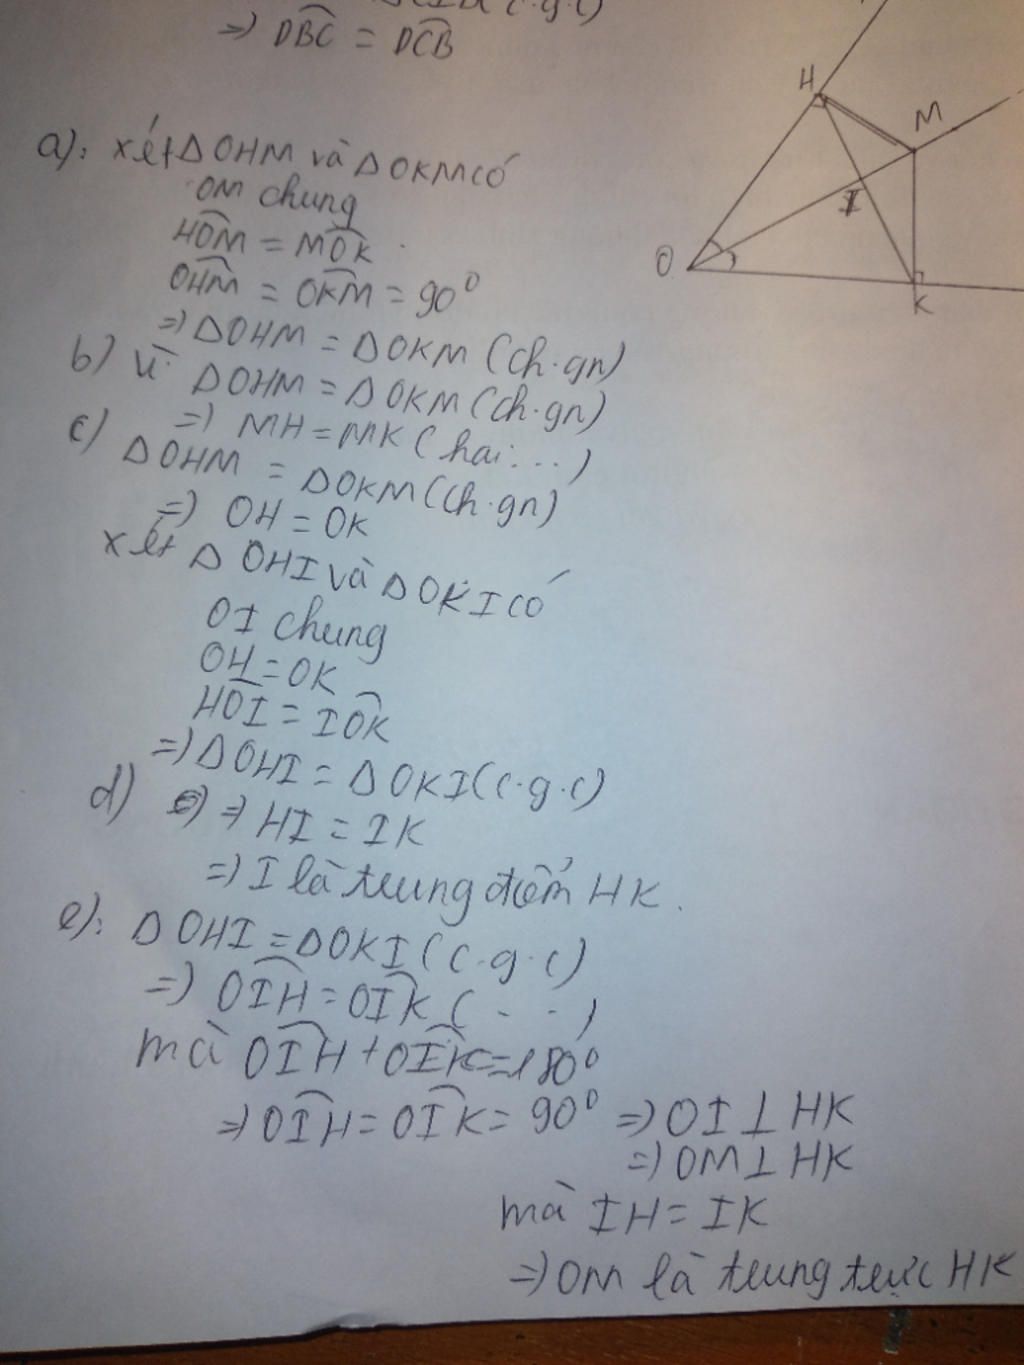 (c.g.c)
=) DBC = DCB
H
M
I
O
K
a): xét Δ OHM và Δ OKM có
OM chung
HOM = MOK
OHM = OKM = 90⁰
=) Δ OHM = Δ OKM (ch.gn)
b) Vì Δ OHM = Δ OKM (ch.gn)
=) MH = MK (hai...)
c) Δ OHM = Δ OKM (ch.gn)
=) OH = OK
xét Δ OHI và Δ OKI có
OI chung
OH = OK
HOI = IOK
=) Δ OHI = Δ OKI (c.g.c)
d) =) HI = IK
=) I là trung điểm HK.
e): Δ OHI = Δ OKI (c.g.c)
=) OIH = OIK (...)
mà OIH + OIK = 180⁰
=) OIH = OIK = 90⁰ =) OI ⊥ HK
=) OM ⊥ HK
mà IH = IK
=) OM là trung trực HK